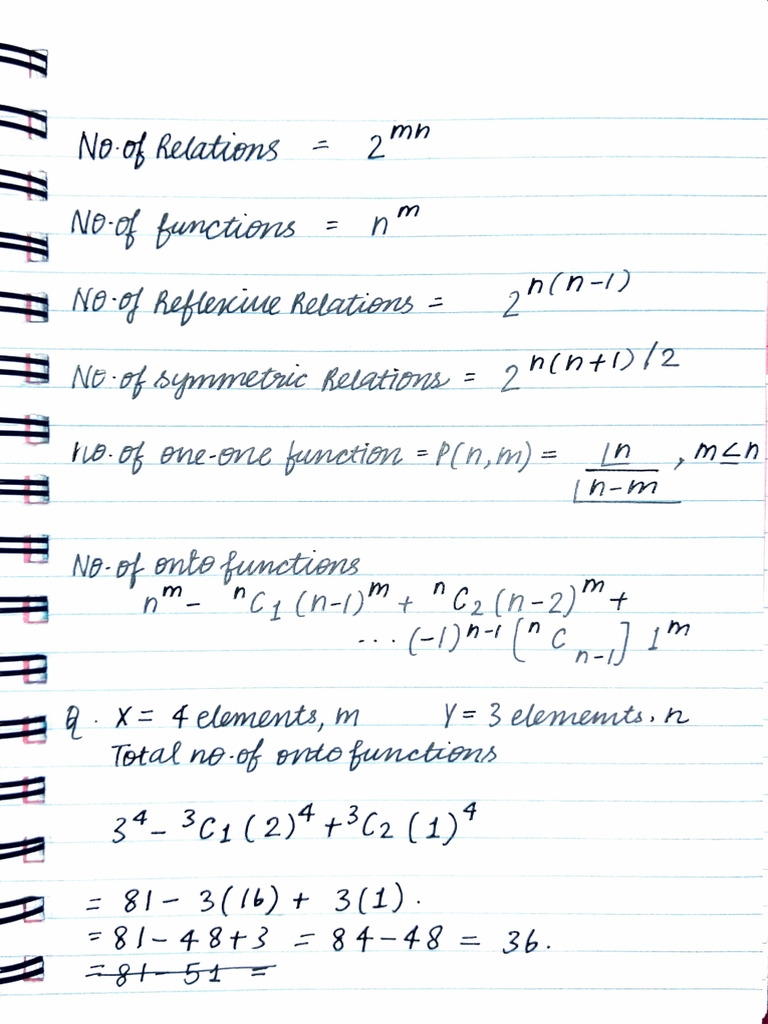 No. of Relations = 2^mn
No. of functions = n^m
No. of Reflexive Relations = 2^n(n-1)
No. of symmetric Relations = 2^n(n+1)/2
No. of one-one function = P(n,m) = |n / |n-m , m≤n
No. of onto functions
n^m - ^nC_1 (n-1)^m + ^nC_2 (n-2)^m +
... (-1)^n-1 [^nC_n-1] 1^m
Q. X = 4 elements, m Y = 3 elememts. n
Total no. of onto functions
3^4 - ^3C_1 (2)^4 + ^3C_2 (1)^4
= 81 - 3(16) + 3(1).
= 81 - 48 + 3 = 84 - 48 = 36.
= 81 - 51 =